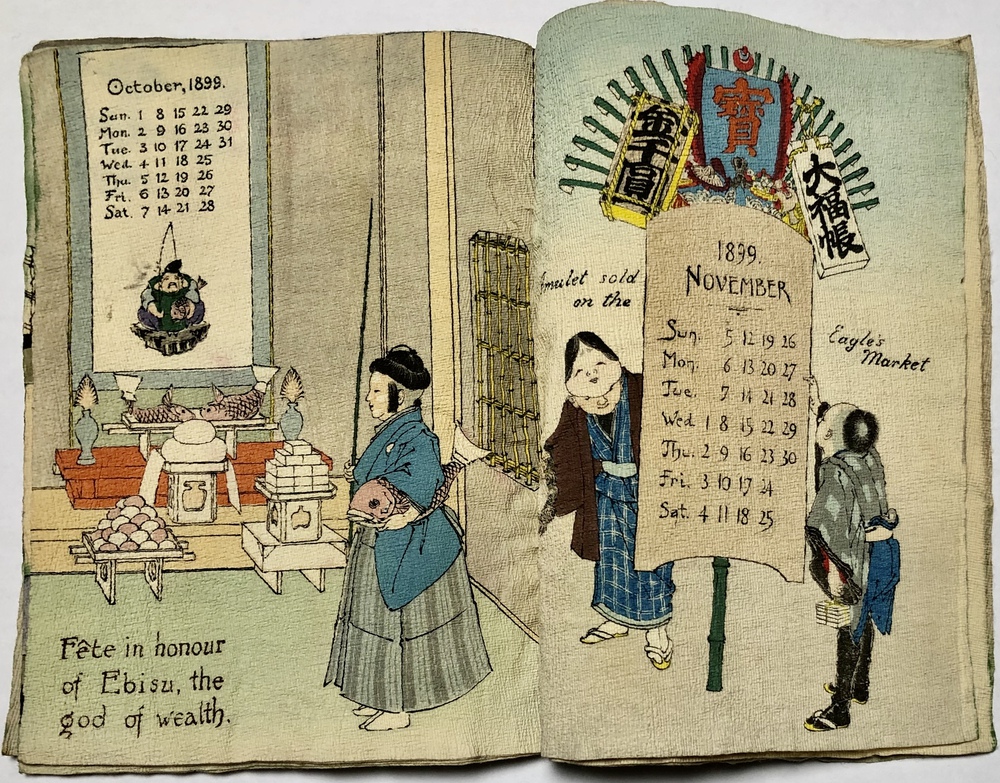 October, 1899.
Sun. 1 8 15 22 29
Mon. 2 9 16 23 30
Tue. 3 10 17 24 31
Wed. 4 11 18 25
Thu. 5 12 19 26
Fri. 6 13 20 27
Sat. 7 14 21 28
Fête in honour
of Ebisu, the
god of wealth.
寶
金千圓
大福帳
Amulet sold
on the
1899.
NOVEMBER
Sun. 5 12 19 26
Mon. 6 13 20 27
Tue. 7 14 21 28
Wed. 1 8 15 22 29
Thu. 2 9 16 23 30
Fri. 3 10 17 24
Sat. 4 11 18 25
Eagle's
Market